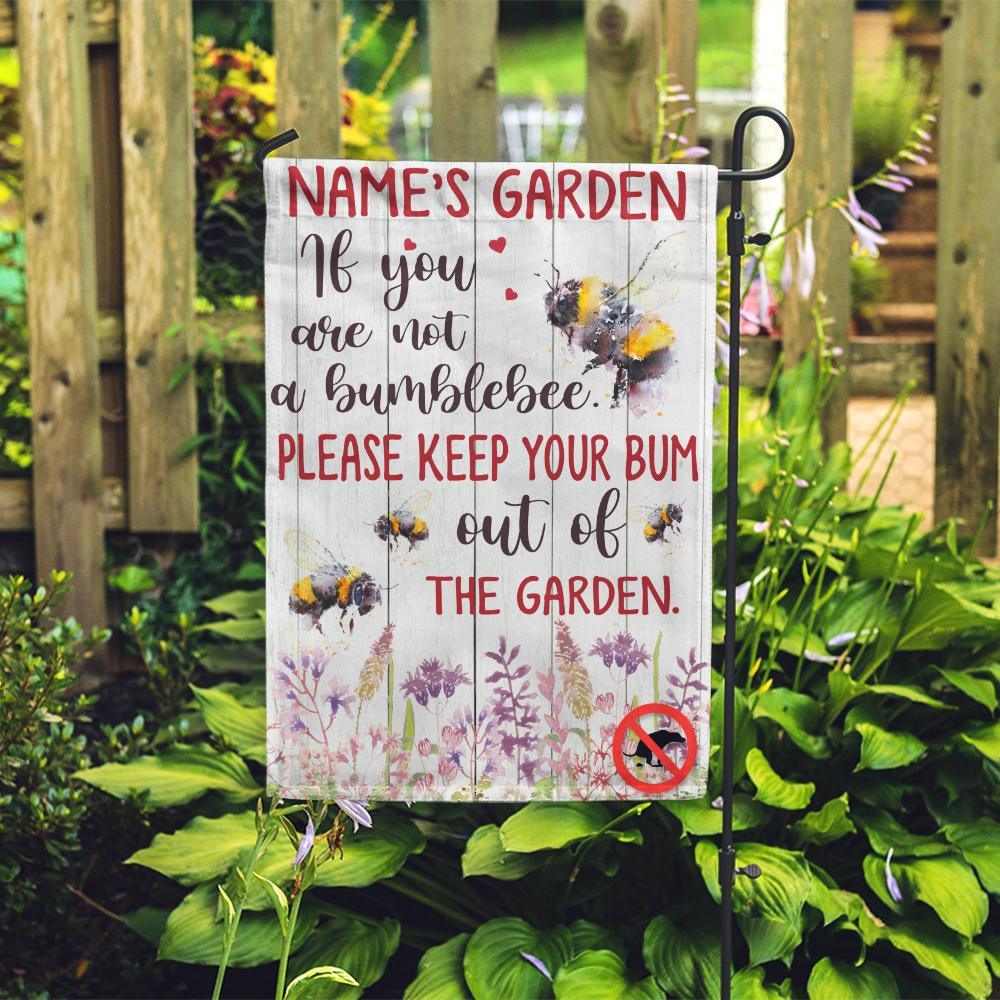 NAME'S GARDEN
If you
are not
a bumblebee.
PLEASE KEEP YOUR BUM
out of
THE GARDEN.